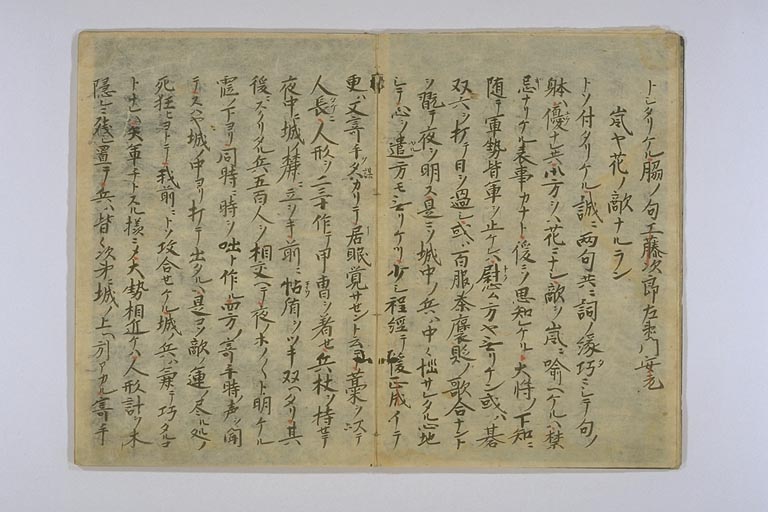 トシタリケル脇ノ句工藤次郎左衛門尉
嵐ヤ花ノ敵ナルラン
トソ付タリケル誠ニ両句共ニ詞ノ縁巧ニシテ句ノ
躰ハ優ナレ共御方ヲハ花ニナシ敵ヲ嵐ニ喩ヘケルハ禁
忌ナリケル表事カナト後ニソ思知レケル大将ノ下知ニ
随テ軍勢皆軍ヲ止ケレハ慰ム方ヤ无リケン或ハ碁
双六ヲ打テ日ヲ過シ或ハ百服茶褒貶ノ歌合ナント
ヲ翫テ夜ヲ明ス是ニソ城中ノ兵ハ中々被悩タル心地
シテ心ヲ遣方モ无リケル少シ程経テ後正成イテ
更ハ又寄手タハカリテ居眠覚サセント云テ藁ヲ以テ
人長ニ人形ヲ二三十作テ甲冑ヲ着セ兵杖ヲ持セテ
夜中ニ城ノ麓ニ立ヲキ前ニ帖楯ヲツキ双ヘタリ其
後ニスクリタル兵五百人ヲ相交ヘテ夜ノホノ〱ト明ケル
霞ノ下ヨリ同時ニ時ヲ咄ト作ル四方ノ寄手時ノ声ヲ聞
テスハヤ城ノ中ヨリ打テ出タルハ是コソ敵ノ運ノ尽ル処ノ
死狂ヒヨトテ我前ニトソ攻合セケル城兵兼テ巧タルコ
トナレハ矢軍チトスル様ニメ大勢相近ケハ人形計ヲ木
隠レニ残シ置テ兵ハ皆々次第ニ城ノ上ヘ引アカル寄手